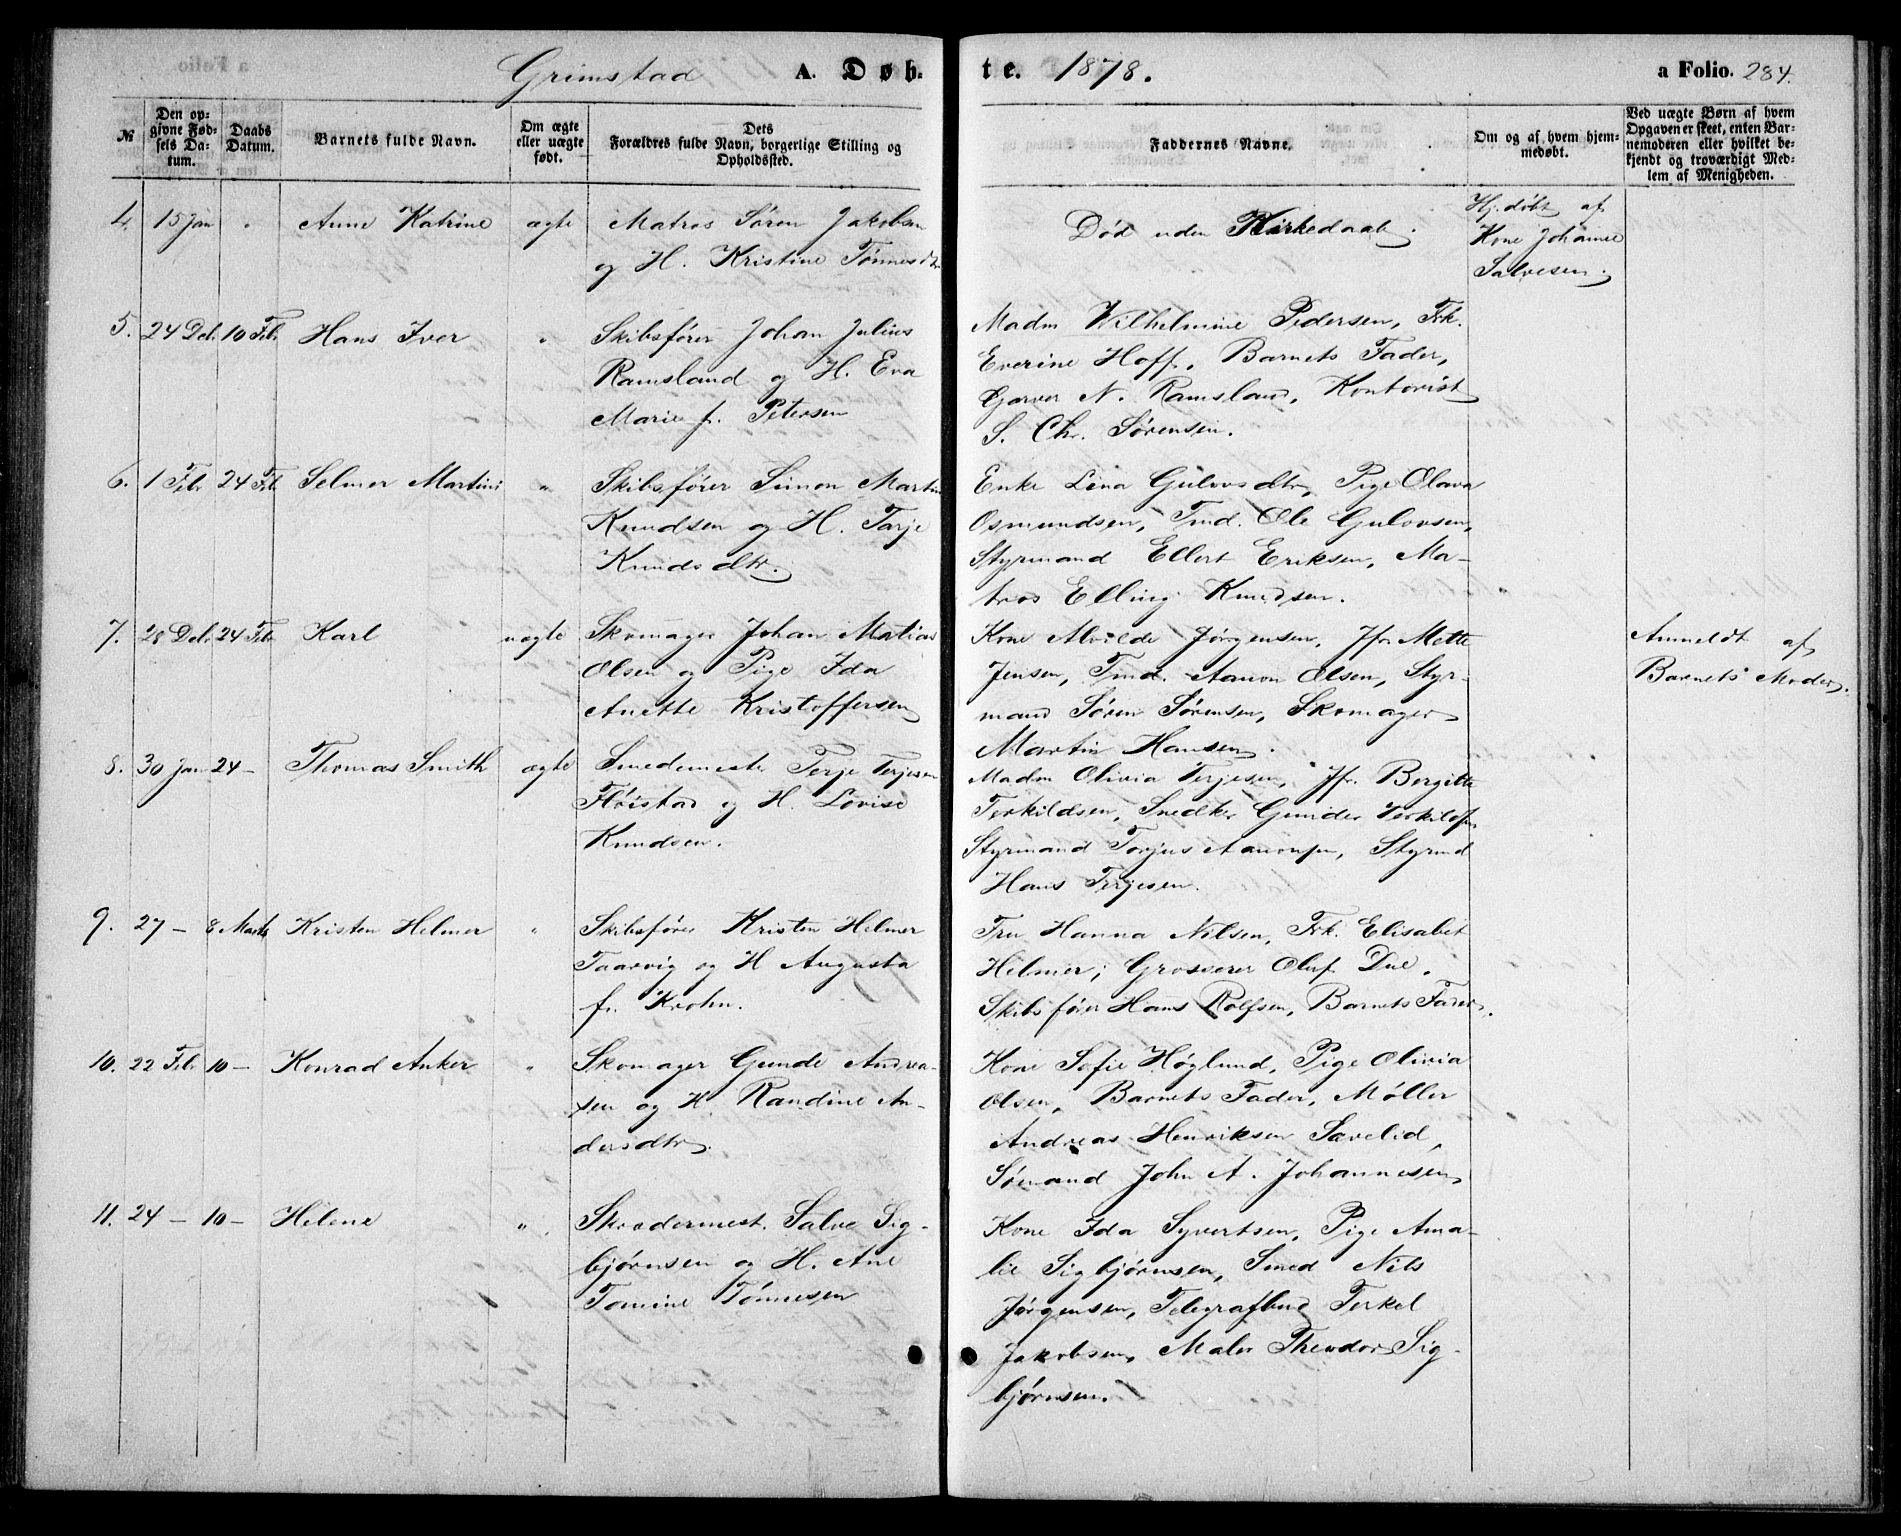 Grimstad A. Døb- te. 1878. a Folio. 284.
№
Den op-
givne Fød-
sels Da-
tum.
Daabs
Datum.
Barnets fulde Navn.
Om ægte
eller uægte
født.
Dets
Forældres fulde Navn, borgerlige Stilling og
Opholdssted.
Faddernes Navne.
Om og af hvem hjem-
medøbt.
Ved uægte Børn af hvem
Opgaven er skeet, enten Bar-
nemoderen eller hvilket be-
kjendt og troværdigt Med-
lem af Menigheden.
4. 15 Jan " Anne Katrine ægte
Matros Søren Jakobsen
og H. Kristine Tønnesdtr
Død uden Kirkedaab.
Hj.døbt af
Kone Johanne
Salvesen.
5. 24 Dec. 10 Feb. Hans Iver "
Skibsfører Johan Julius
Ramsland og H. Eva
Marie f. Petersen
Madm Wilhelmine Pedersen, Frk.
Everine Hoff, Barnets Fader,
Garver N. Ramsland, Kontorist
S. Chr. Sørensen.
6. 1 Febr 24 Feb. Selmer Martini "
Skibsfører Simon Martin
Knudsen og H. Tarje
Knudsdtr.
Enke Lena Gulovsdtr, Pige Olava
Osmundsen, Tmd. Ole Gulovsen,
Styrmand Ellert Eriksen, Ma-
tros Elling Knudsen.
7. 28 Dec. 24 Feb. Karl uægte
Skomager Johan Matias
Olsen og Pige Ida
Anette Kristoffersen
Kone Alvilde Jørgensen, Jfr. Mette
Jensen, Tmd. Aanon Olsen, Styr-
mand Søren Sørensen, Skomager
Martin Hansen.
Anmeldt af
Barnets Moder.
8. 30 Jan 24 - Thomas Smith ægte
Smedemester Terje Terjesen
Fløistad og H. Lovise
Knudsen.
Madm Olivia Terjesen, Jfr. Bergitte
Terkildsen, Snedker Gunder Terkildsen
Styrmand Torjus Aanonsen, Styrmd
Hans Terjesen.
9. 27 - 8 Marts Kristen Helmer "
Skibsfører Kristen Helmer
Taarvig og H Augusta
f. Krohn.
Fru Hanna Nilsen, Frk. Elisabet
Helmer, Grosserer Oluf Due.
Skibsfører Hans Rolfsen, Barnets Fader.
10. 22 Feb. 10 - Konrad Anker "
Skomager Gunde Andrea-
sen og H. Randine An-
dersdtr.
Kone Sofie Høglund, Pige Olivia
Olsen, Barnets Fader, Møller
Andreas Henriksen Savelid,
Sømand John A. Johannesen
11. 24 - 10 - Helene "
Skrædermest. Salve Sig-
bjørnsen og H. Ane
Tomine Tønnesen
Kone Ida Syvertsen, Pige Ama-
lie Sigbjørnsen, Smed Nils
Jørgensen, Telegrafbud Terkel
Jakobsen, Maler Theodor Sig-
bjørnsen.